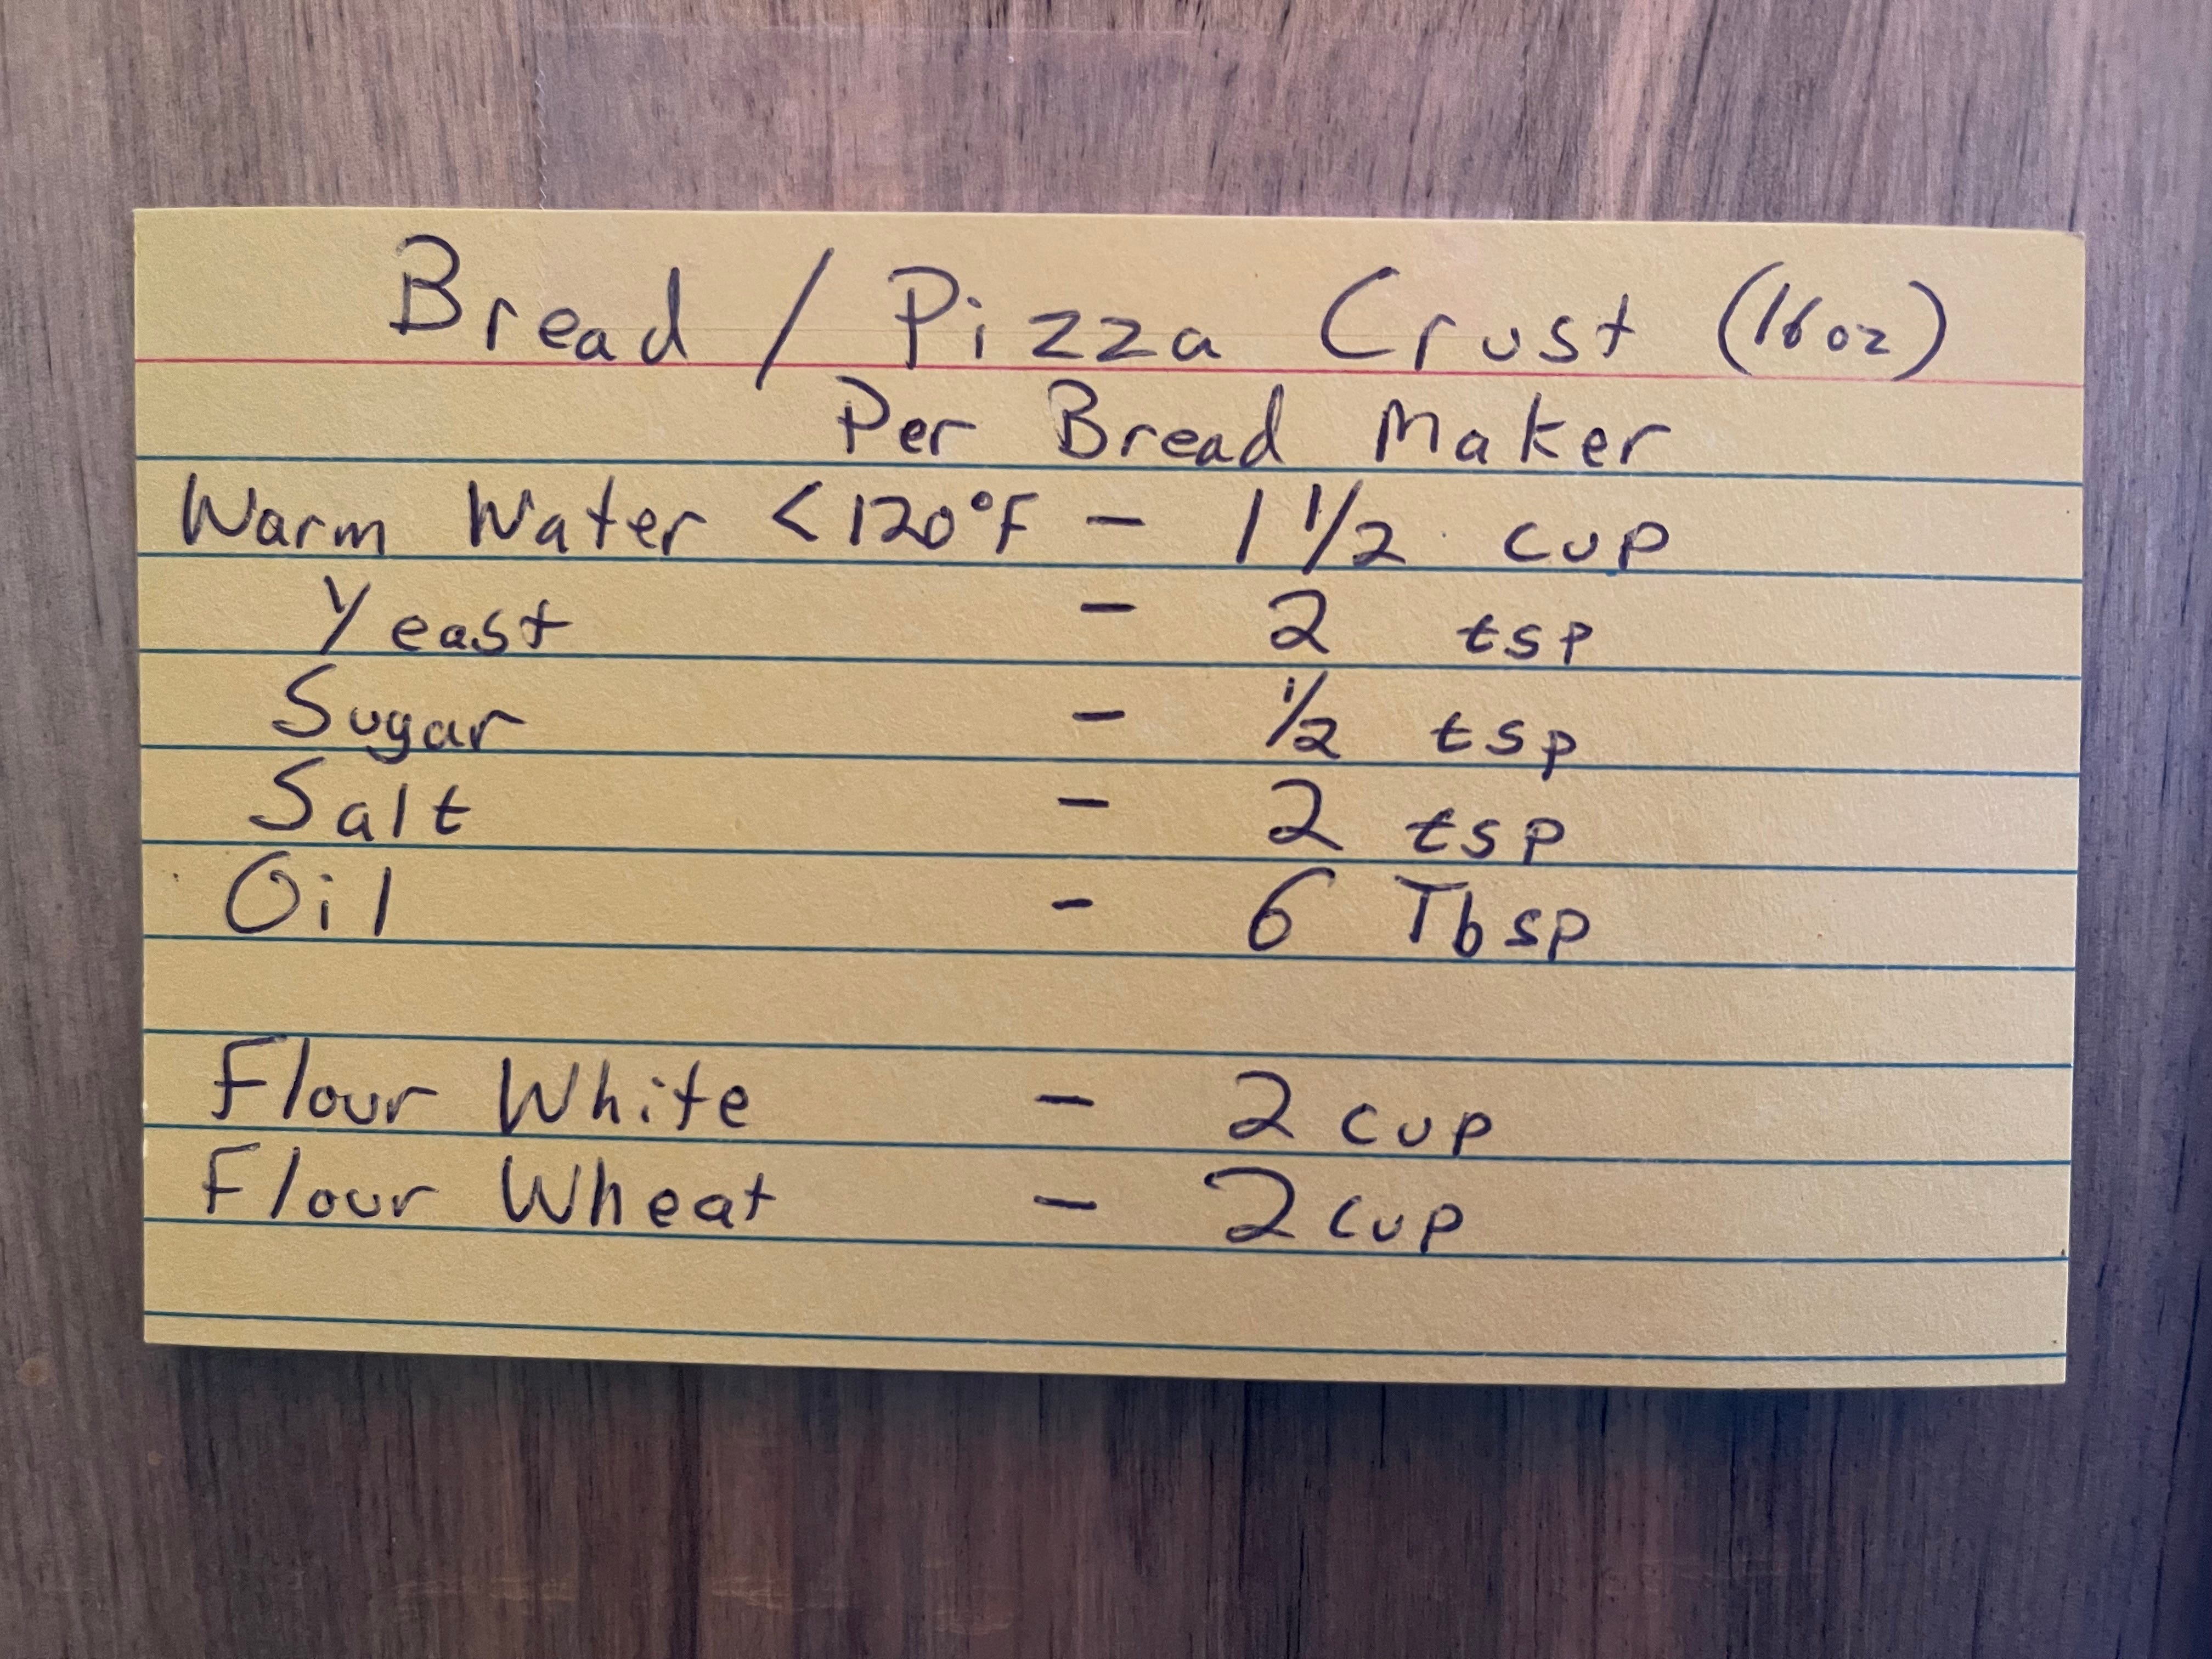 Bread / Pizza Crust (16oz)
Per Bread Maker
Warm Water <120°F - 1 1/2 cup
Yeast - 2 tsp
Sugar - 1/2 tsp
Salt - 2 tsp
Oil - 6 Tbsp
Flour White - 2 cup
Flour Wheat - 2 cup